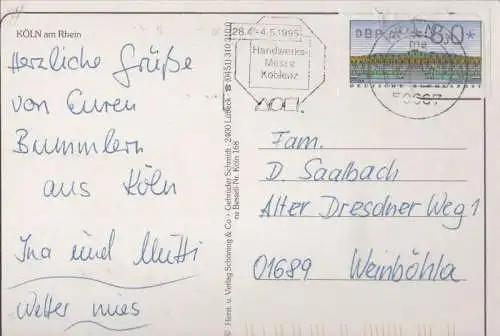 KÖLN am Rhein
Herzliche Grüße
von Euren
Bummlern
aus Köln
Ina und Mutti
Wetter mies
© Herst. u. Verlag Schöning & Co · Gebrüder Schmidt · 2400 Lübeck · ☎ (0451) 310
Bestell-Nr. Köln 168
28.4.-4.5.1995
Handwerks-
Messe
Koblenz
DBP
80*
DEUTSCHE BUNDESPOST
Fam.
D. Saalbach
Alter Dresdner Weg 1
01689 Weinböhla